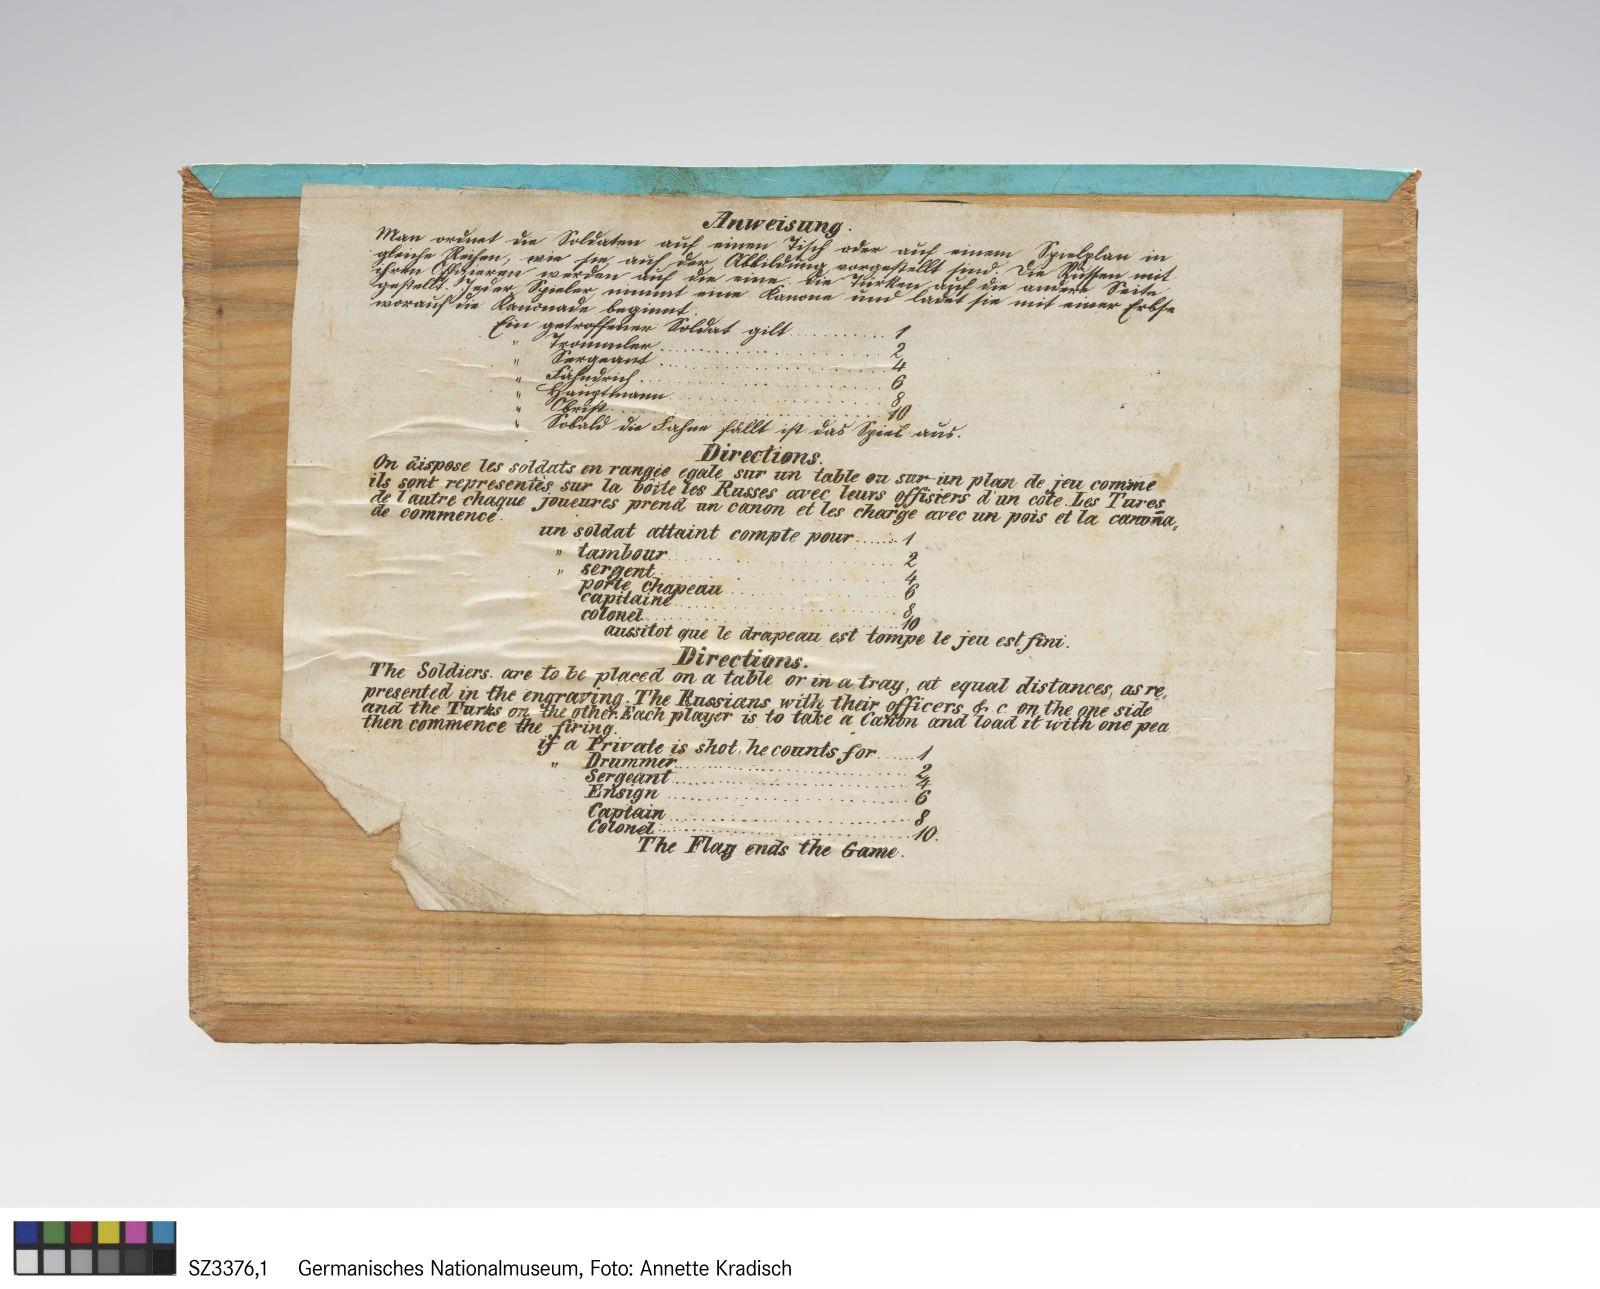 Anweisung.
Man ordnet die Soldaten auf einen Tisch oder auf einem Spielplan in
gleiche Reihen, wie sie auf der Abbildung vorgestellt sind. Die Russen mit
ihren Offizieren werden auf die eine. die Türken auf die andere Seite
gestellt. Jeder Spieler nimmt eine Kanone und ladet sie mit einer Erbse
worauf die Kanonade beginnt.
Ein getroffener Soldat gilt .......... 1
" Trommler .......... 2
" Sergeant .......... 4
" Fähndrich .......... 6
" Hauptmann .......... 8
" Obrist .......... 10
" Sobald die Fahne fällt ist das Spiel aus.
Directions.
On dispose les soldats en rangée egale sur un table ou sur un plan de jeu comme
ils sont representés sur la boite les Russes avec leurs offisiers d'un côte. Les Turcs
de l'autre chaque joueures prend un canon et les charge avec un pois et la canona„
de commence.
un soldat attaint compte pour ....... 1
" tambour .......... 2
" sergent .......... 4
porte chapeau .......... 6
capitaine .......... 8
colonel .......... 10
aussitot que le drapeau est tompe le jeu est fini.
Directions.
The Soldiers. are to be placed on a table or in a tray, at equal distances, as re„
presented in the engraving. The Russians with their officers & c. on the one side
and the Turks on the other. Each player is to take a Canon and load it with one pea
then commence the firing.
if a Private is shot, he counts for ...... 1
" Drummer .......... 2
Sergeant .......... 4
Ensign .......... 6
Captain .......... 8
Colonel .......... 10.
The Flag ends the Game.
SZ3376,1 Germanisches Nationalmuseum, Foto: Annette Kradisch